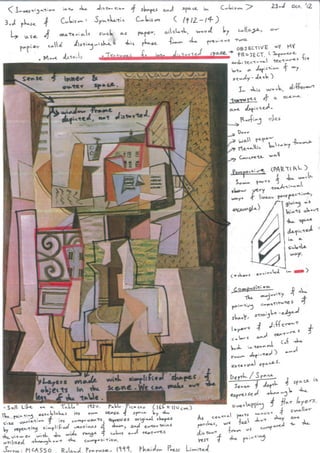 < Investigation into the distortion of shapes and space in Cubism >
23rd Dec '12
3rd phase of Cubism: Synthetic Cubism (1912-14)
↳ use of materials such as paper, oilcloth, wood by collage, or
papier collé distinguishes this phase from the previous two
• More details
• Textures to into distorted space
→ OBJECTIVE OF MY
PROJECT. (Japanese
architectural textures
into a depiction of my
study-desk)
Sense of inner &
outer space.
window frame
depicted, not distorted.
In this work, different
textures of a scene
are depicted.
→ Roofing tiles
→ Door
→ Wall paper
→ Metallic balcony frame
→ Concrete wall
Perspective (PARTIAL)
Some parts of the work
show very traditional
ways of linear perspective,
example)
giving us
hints about
the space
depicted
in a
subtle
way.
(others encircled in
Composition
The majority of the
painting constitutes of
sharp, straight-edged
layers of different
colors and textures of
both internal (of the
room depicted) and
external spaces.
Depth / Space
Sense of depth of space is
expressed through the
overlapping of flat layers.
As central parts consist of smaller
patches, we feel that they are
distant from us compared to the
rest of the painting.
Shapes made with simplified shapes of
objects in the scene. We can make out the
legs of the table.
- Still Life on a Table 1920. Pablo Picasso
The painting establishes its own sense of space by the
size variation of its components, repeats original shapes
by repeating simplified versions of them, and entertains
the viewer with the wide range of colors and textures
utilised throughout the composition.
from: PICASSO. Roland Penrose. 1991, Phaidon Press Limited